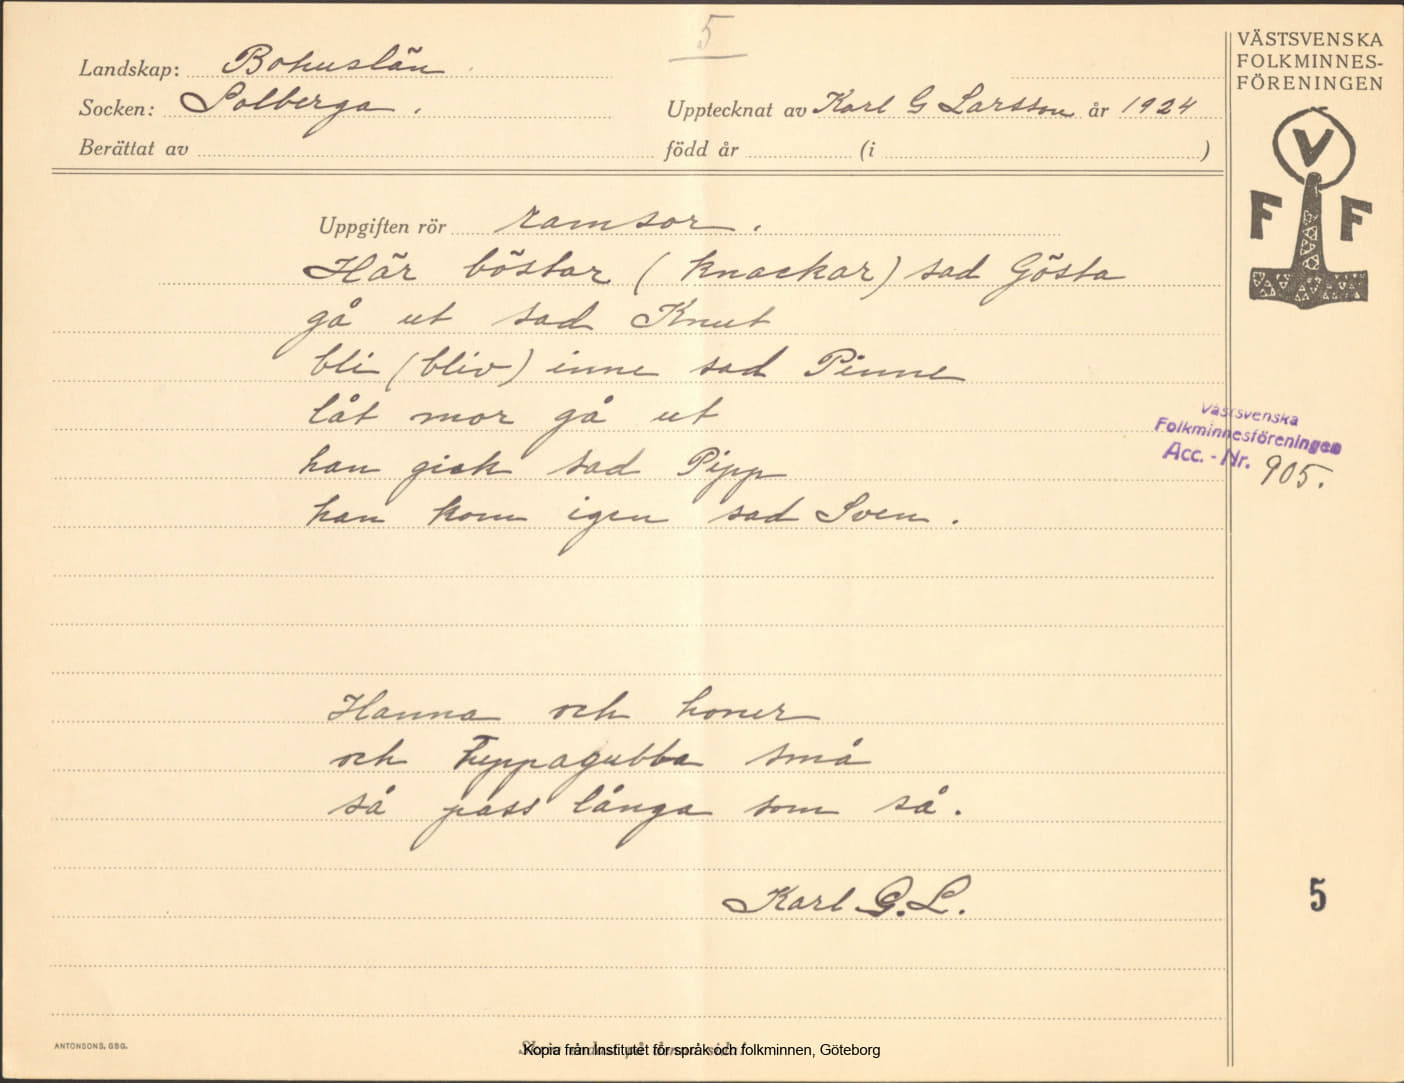 5
Landskap: Bohuslän
Socken: Solberga.
Upptecknat av Karl G Larsson år 1924
Berättat av född år (i )
VÄSTSVENSKA
FOLKMINNES-
FÖRENINGEN
V
F F
Uppgiften rör ramsor.
Här böstar (knackar) sad Gösta
gå ut sad Knut
bli (bliv) inne sad Pinne
låt mor gå ut
han gick sad Pipp
han kom igen sad Sven.
Västsvenska
Folkminnesföreningen
Acc. - Nr. 905.
Hanna och honer
och Tuppagubba små
så pass långa som så.
Karl G. L.
5
ANTONSONS, GBG.
Kopia från Institutet för språk och folkminnen, Göteborg